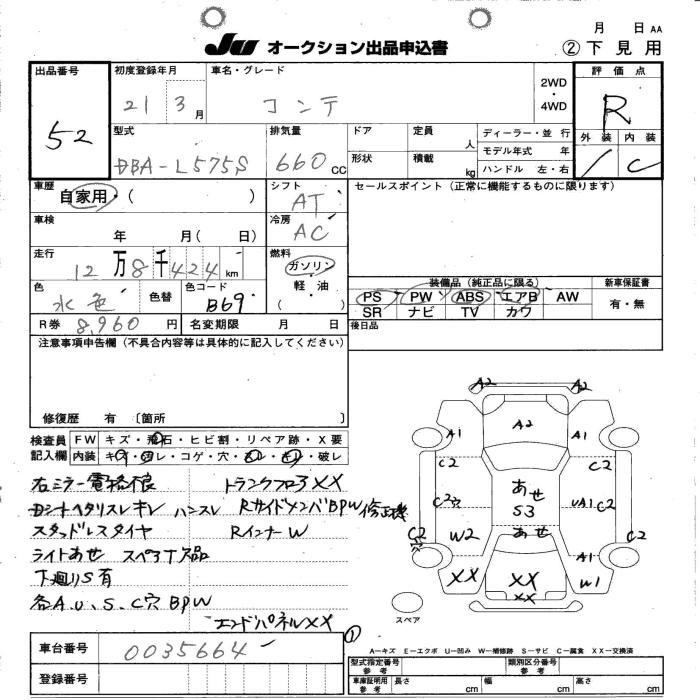 月 日 AA
JU オークション出品申込書
② 下見用
出品番号 初度登録年月 車名・グレード 2WD ・ 4WD 評価点
52
21 3月 コンテ R
型式 排気量 ドア 定員 人 ディーラー・並行 外装 内装
DBA-L575S 660cc 形状 積載 kg モデル年式 年 / C
ハンドル 左・右
車歴 シフト セールスポイント(正常に機能するものに限ります)
自家用・( ) AT
車検 冷房
年 月( 日) AC
走行 燃料
12万8千424km ガソリン
軽油
( )
色 色替 色コード
水色 B69
装備品(純正品に限る) 新車保証書
PS PW ABS エアB AW 有・無
SR ナビ TV カワ
R券 8,960円 名変期限 月 日 後日品
注意事項申告欄(不具合内容等は具体的に記入してください)
修復歴 有 〔箇所 〕
検査員 FW キズ・飛石・ヒビ割・リペア跡・X要
記入欄 内装 キズ・ヨゴレ・コゲ・穴・スレ・キレ・破レ
右ミラー電格不良 トランクフロアXX
Dシートヘタリスレキレ ハンスレ RサイドメンバBPW修正機
スタッドレスタイヤ RインナーW
ライトあせ スペアT欠品
下廻りS有
各A.U.S.C穴 BPW
エンドパネルXX
①
A2 A2
A2
A1 A1
C2 C2
あせ
S3
C2穴 UA1 C2
C2 W2 あせ C2
A1
XX XX W1
XX
スペア
A-キズ E-エクボ U-凹み W-補修跡 S-サビ C-腐食 XX-交換済
車台番号 0035664
登録番号
型式指定番号 参考 類別区分番号 参考
車庫証明用 参考 長さ cm 幅 cm 高さ cm